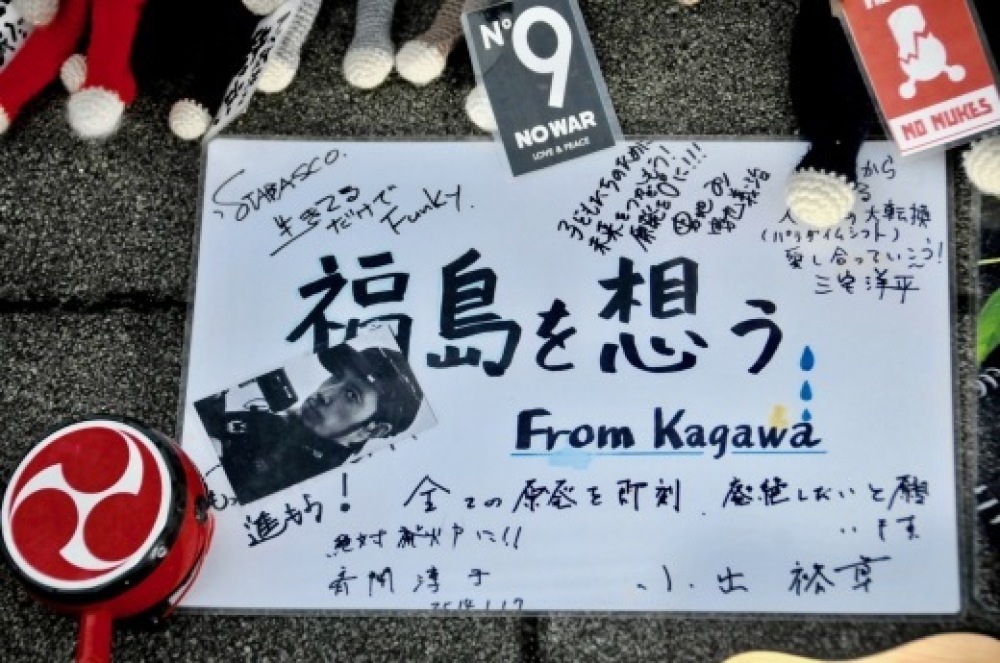 Nº
9
NO WAR
LOVE & PEACE
NO NUKES
STABASCO.
生きてる
だけで
Funky.
子どもたちのために
未来をつなごう！
原発を0に!!!
から
の大転換
(パラダイムシフト)
愛し合っていこう！
三宅洋平
福島を想う
From Kagawa
進もう！
全ての原発を即刻、廃絶したいと願
います
絶対廃炉に!!
小出裕章